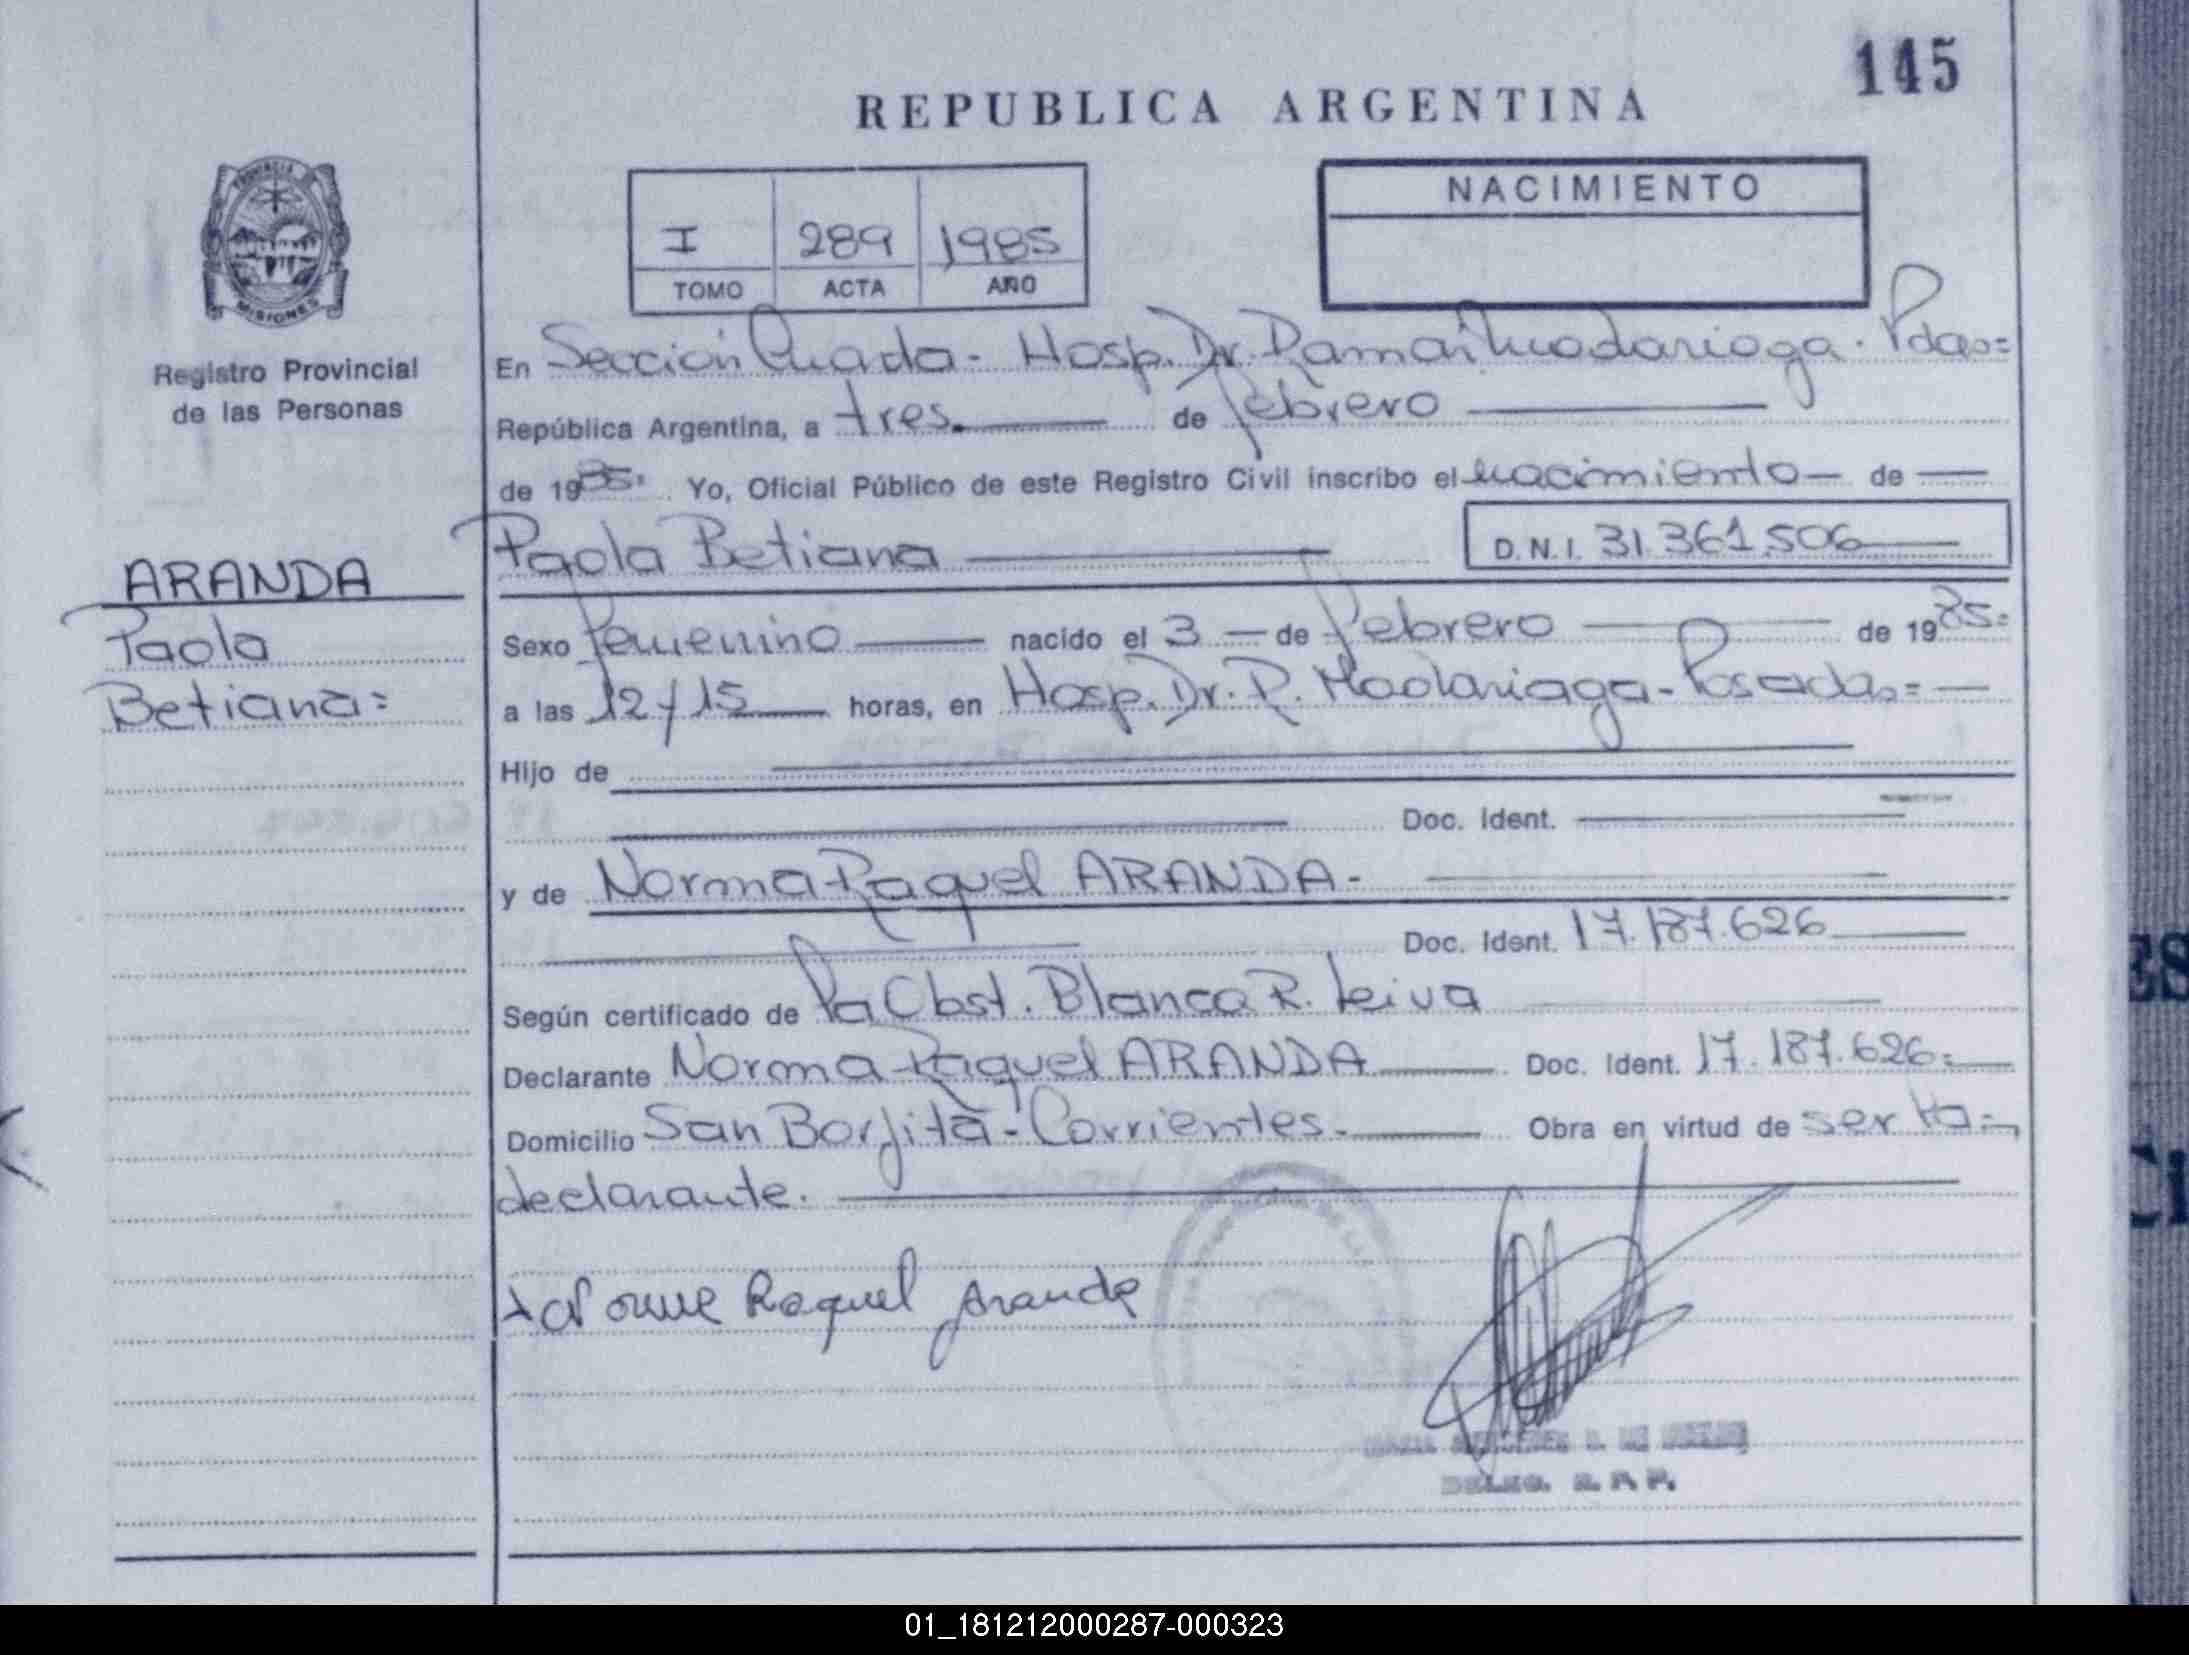 145
REPUBLICA ARGENTINA
PROVINCIA
MISIONES
Registro Provincial
de las Personas
I 289 1985
TOMO ACTA AÑO
NACIMIENTO
En Sección Cuarta - Hosp. Dr. Ramón Madariaga - Pdas=
República Argentina, a tres. de febrero
de 1985. Yo, Oficial Público de este Registro Civil inscribo el nacimiento de
Paola Betiana D.N.I. 31.361.506
ARANDA
Paola
Betiana=
Sexo femenino nacido el 3 de febrero de 1985=
a las 12/15 horas, en Hosp. Dr. R. Madariaga - Posadas=
Hijo de
Doc. Ident.
y de Norma Raquel ARANDA-
Doc. Ident. 17.187.626
Según certificado de la Obst. Blanca R. Leiva
Declarante Norma Raquel ARANDA Doc. Ident. 17.187.626=
Domicilio San Borjita - Corrientes. Obra en virtud de ser la
declarante.
Norma Raquel Aranda
DELEG. R. P. P.
ES
CI
01_181212000287-000323